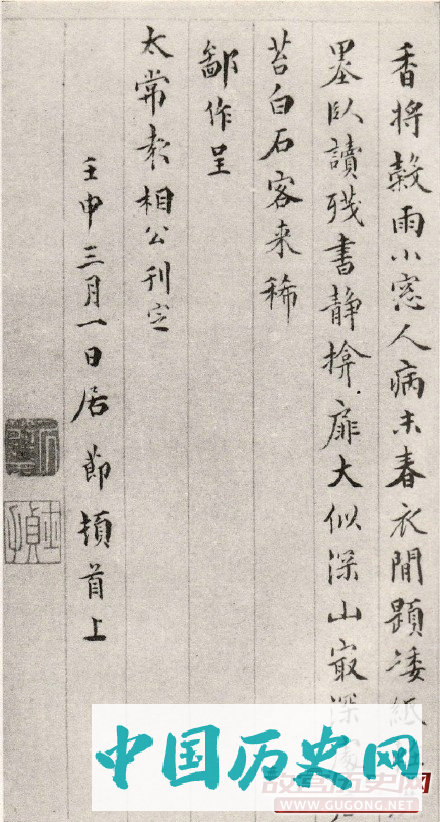 香將穀雨小窓人病未春衣閒題凄紙
墨臥讀殘書静掩扉大似深山㝡深
苔白石客来稀
鄙作呈
太常袁相公刊定
壬申三月一日居節頓首上
中国历史网
故宫历史网
WWW.GUGONG.NET